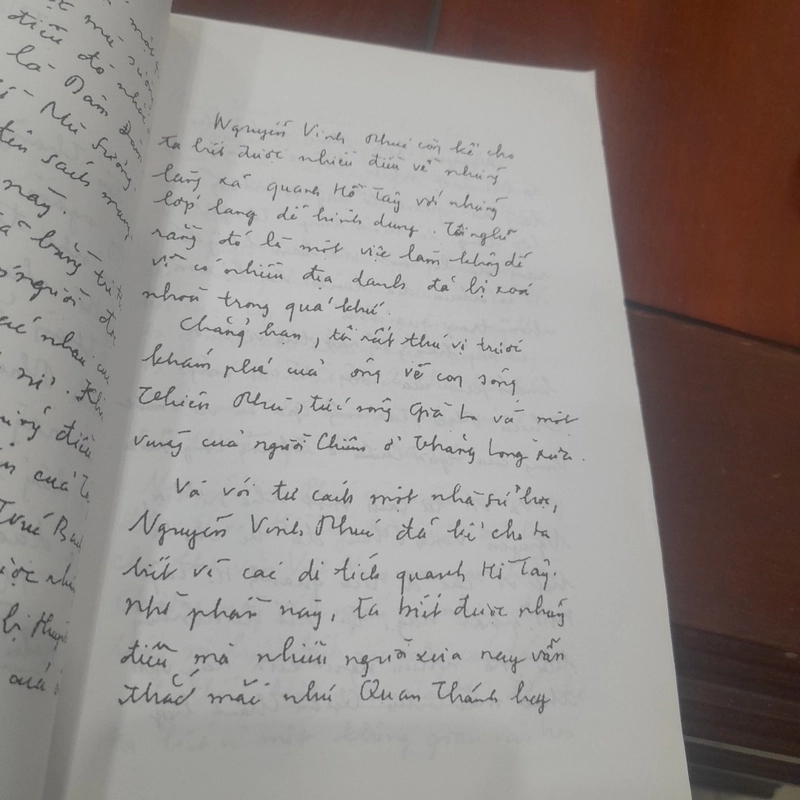 một
điều đó nhiều
là Dâm Đàm
Mù Sương
tên sách mang
này.
người
các nhau
điều
của
Trúc Bạch
Nguyễn Vinh Phúc còn kể cho
ta biết được nhiều điều về những
làng xã quanh Hồ Tây với những
lớp lang dễ hình dung. Tôi nghĩ
rằng đó là một việc làm không dễ
vì có nhiều địa danh đã bị xoá
nhoà trong quá khứ.
Chẳng hạn, tôi rất thú vị trước
khám phá của ông về con sông
Thiên Phù, tức sông Già La và một
vương của người Chiêm ở Thăng Long xưa.
Và với tư cách một nhà sử học,
Nguyễn Vinh Phúc đã kể cho ta
biết về các di tích quanh Hồ Tây.
Nhờ phần này, ta biết được những
điều mà nhiều người xưa nay vẫn
thắc mắc như Quan Thánh hay